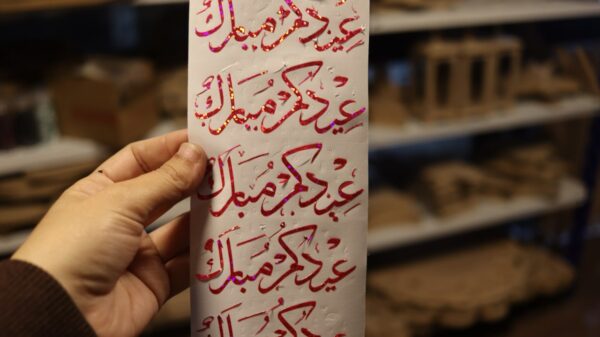 عيدكم مبارك
عيدكم مبارك
عيدكم مبارك
عيدكم مبارك
عيدكم مبارك